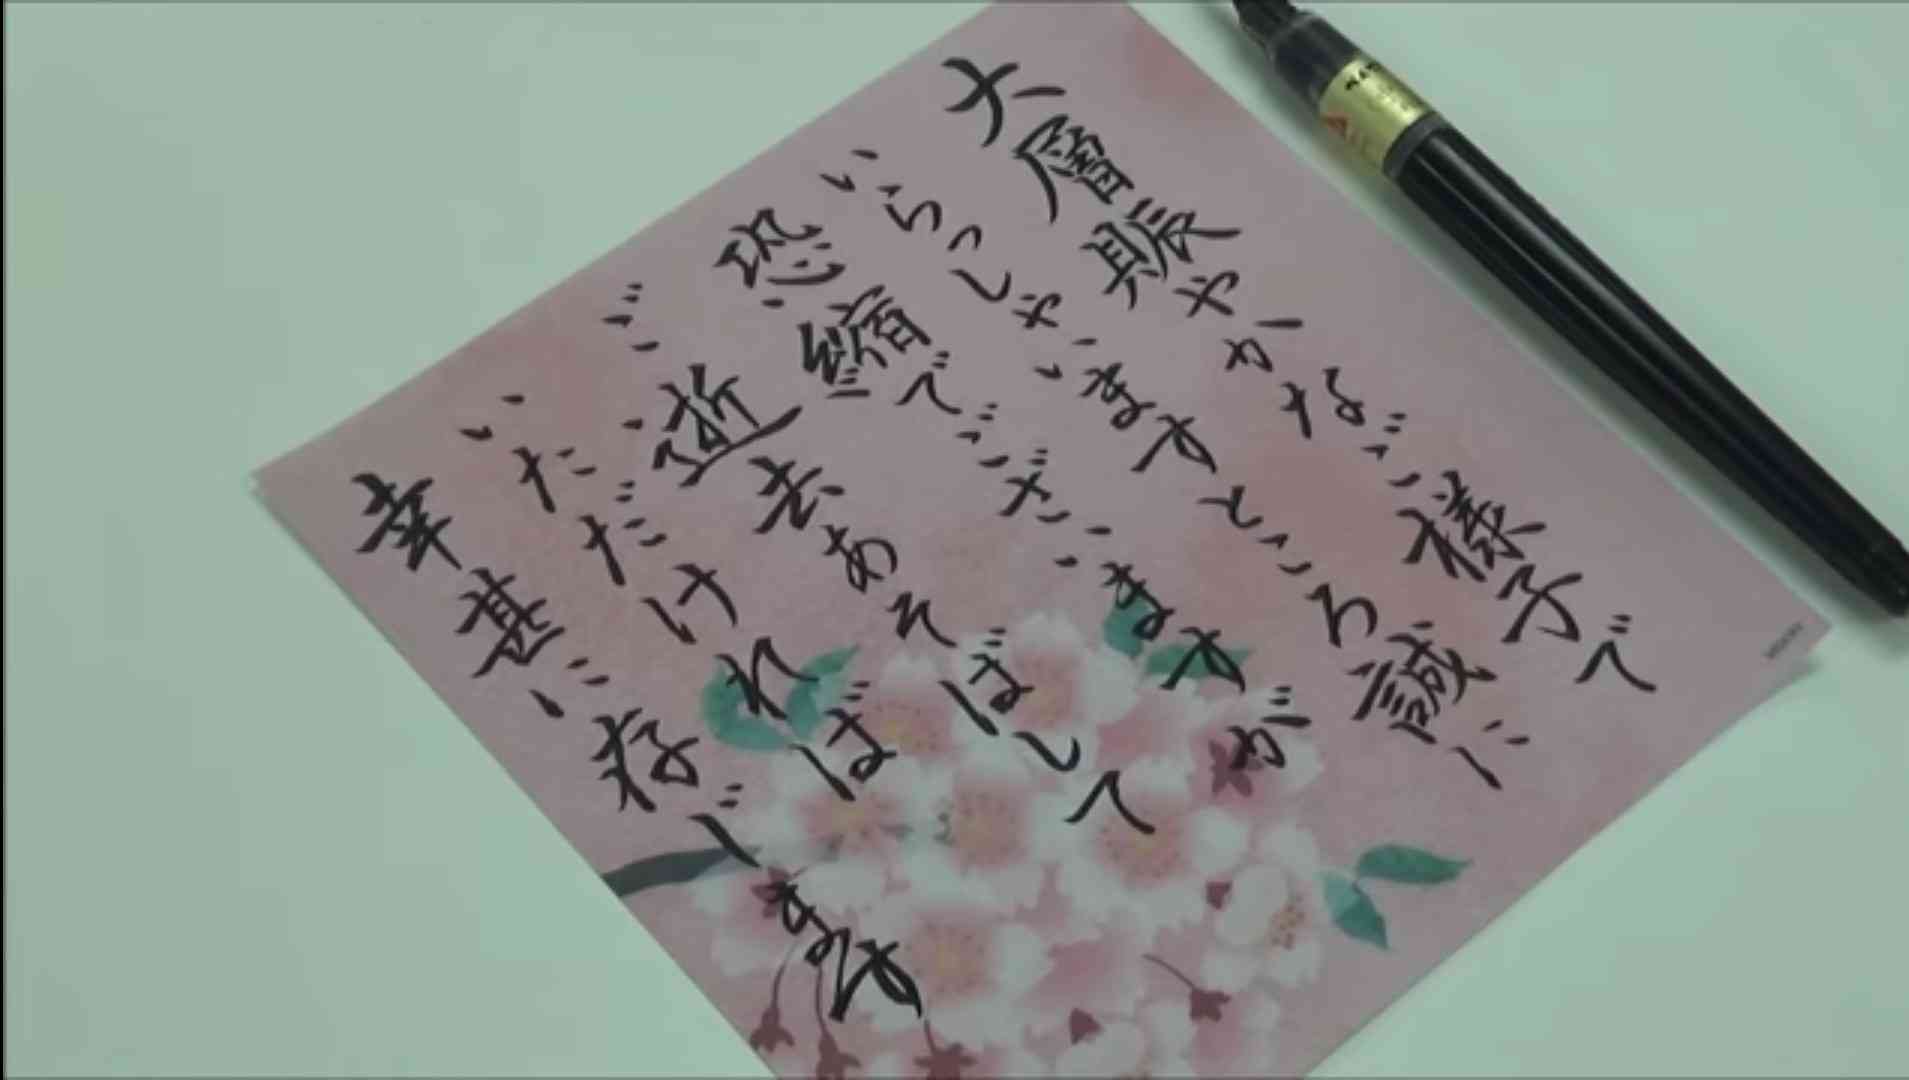 大層賑やかなご様子で
いらっしゃいますところ誠に
恐縮でございますが
ご逝去あそばして
いただければ
幸甚に存じます